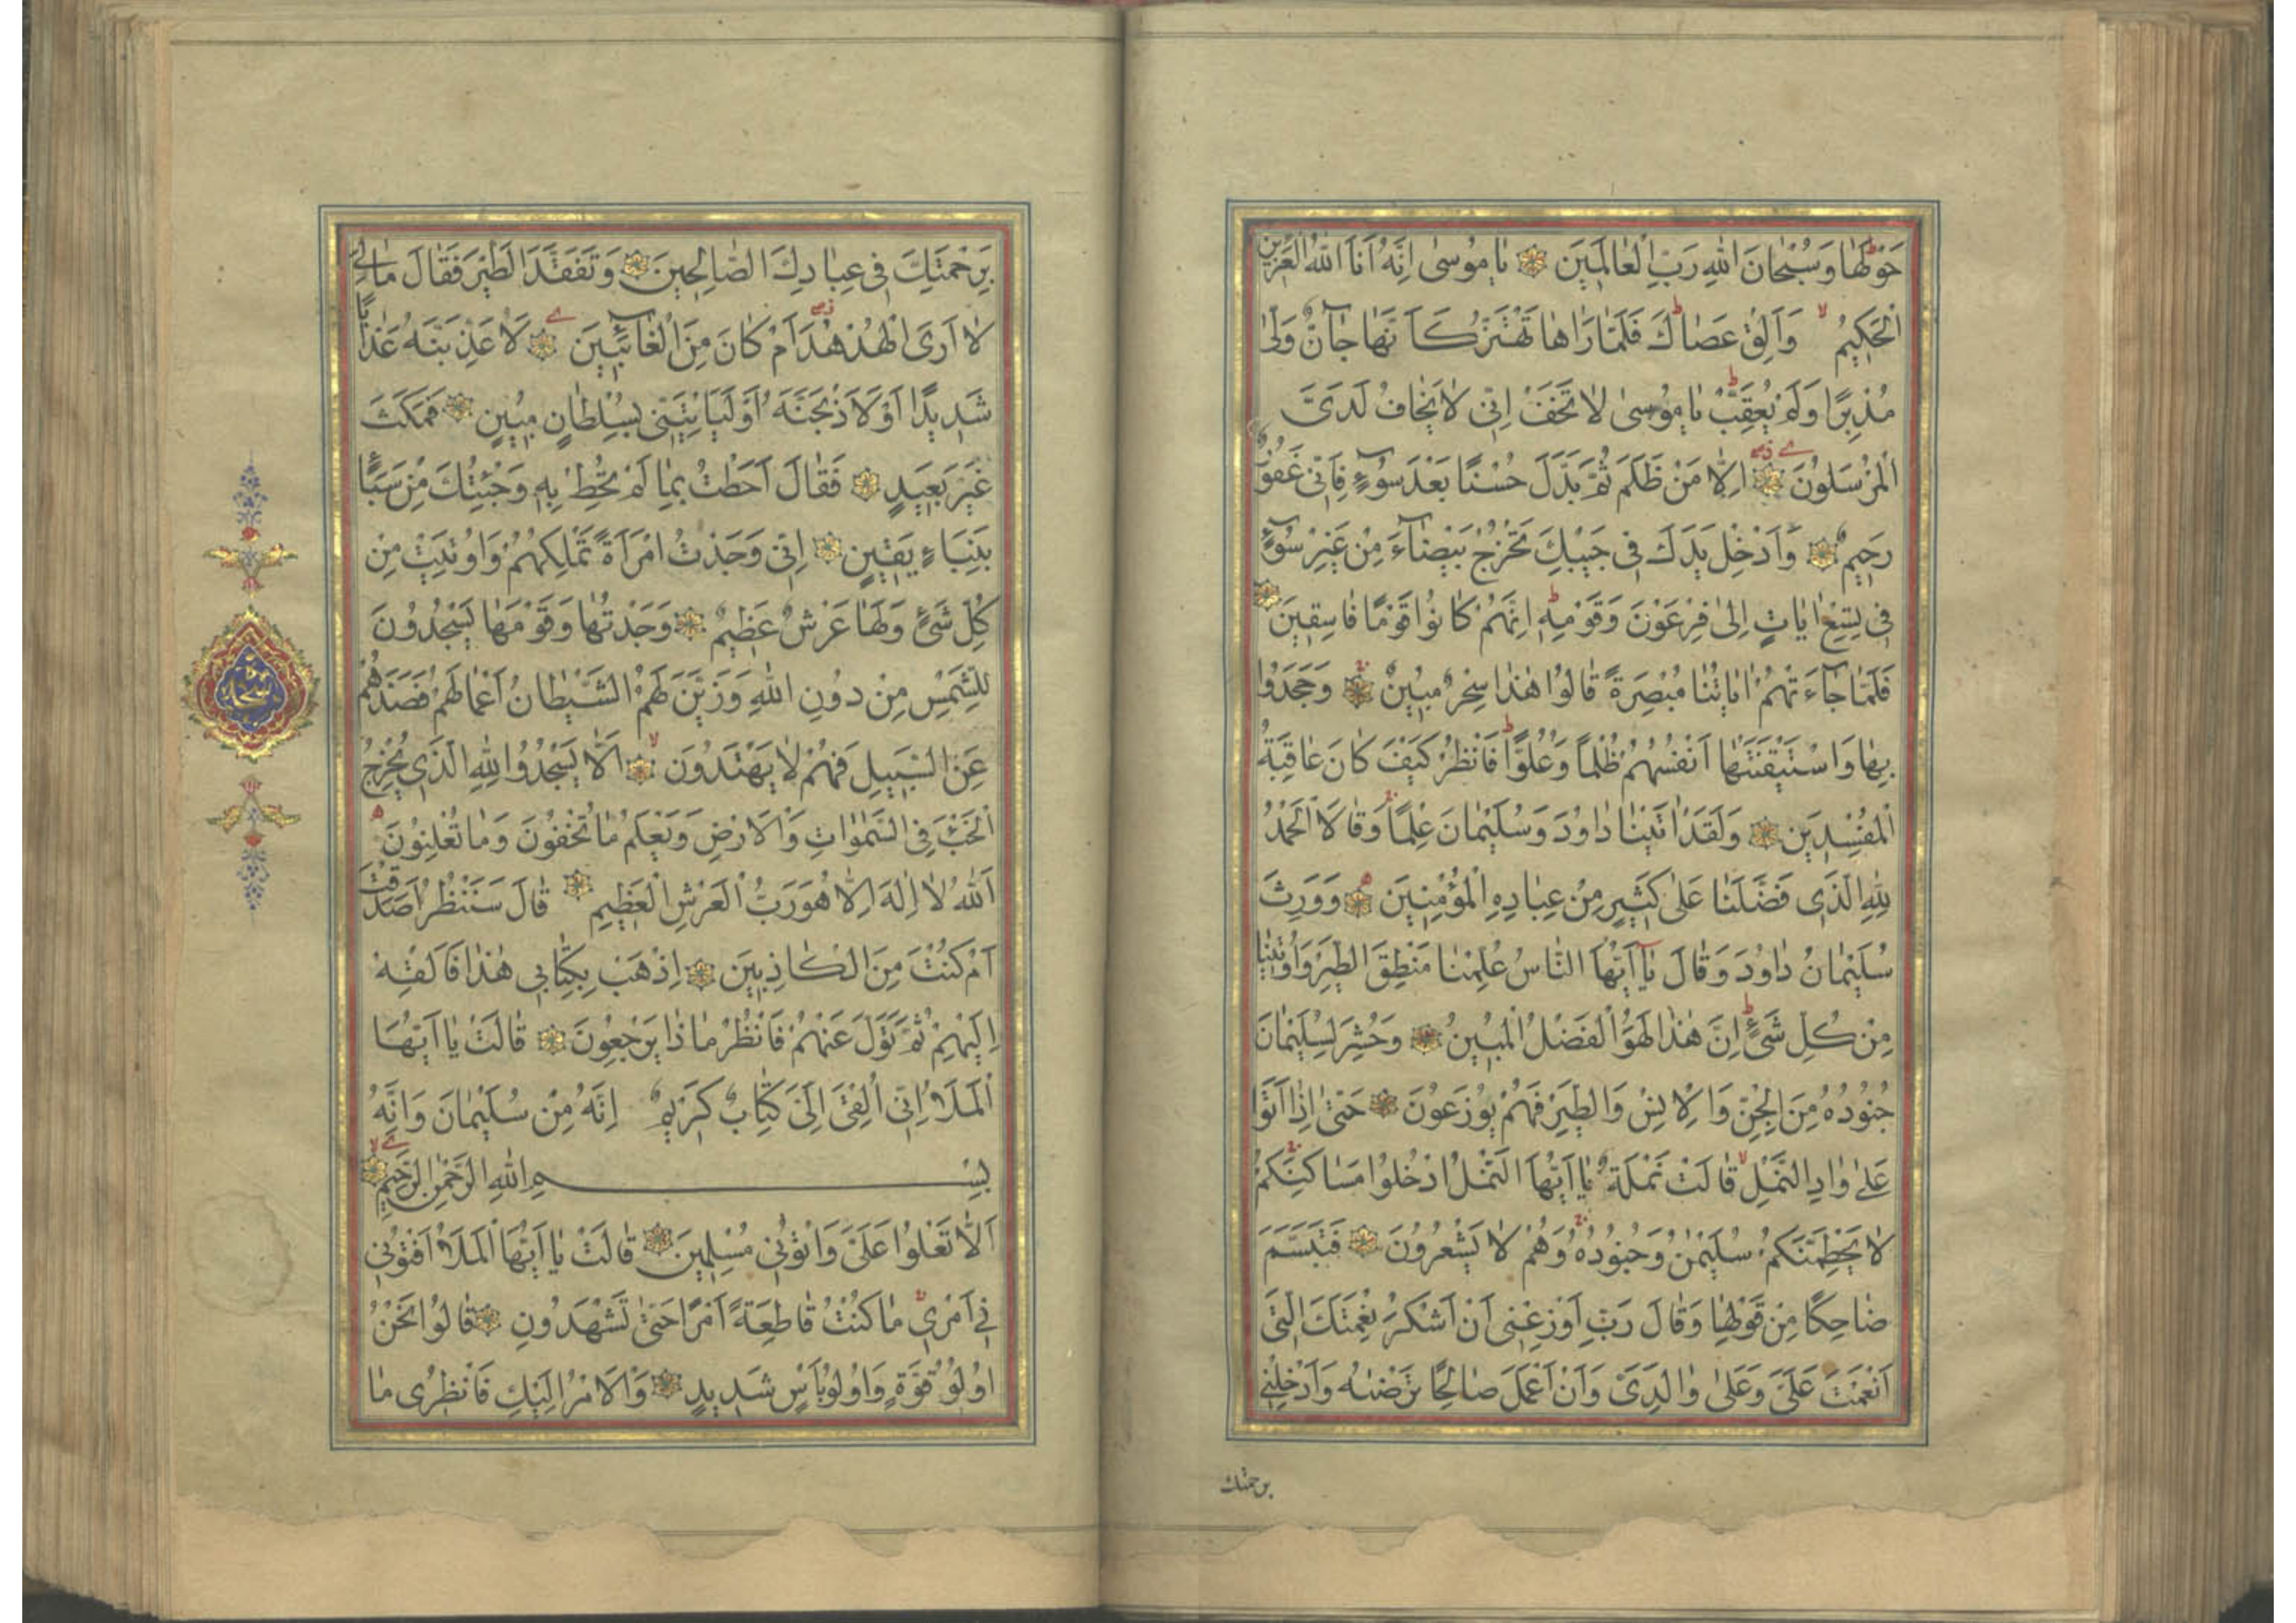 حَوْلَهَا وَسُبْحَانَ اللّٰهِ رَبِّ الْعَالَمِينَ يَا مُوسٰى اِنَّهُ اَنَا اللّٰهُ الْعَزِيزُ
الْحَكِيمُ وَاَلْقِ عَصَاكَ فَلَمَّا رَاٰهَا تَهْتَزُّ كَاَنَّهَا جَآنٌّ وَلّٰى
مُدْبِرًا وَلَمْ يُعَقِّبْ يَا مُوسٰى لَا تَخَفْ اِنِّى لَا يَخَافُ لَدَىَّ
الْمُرْسَلُونَ اِلَّا مَنْ ظَلَمَ ثُمَّ بَدَّلَ حُسْنًا بَعْدَ سُوءٍ فَاِنِّى غَفُورٌ
رَحِيمٌ وَاَدْخِلْ يَدَكَ فِى جَيْبِكَ تَخْرُجْ بَيْضَآءَ مِنْ غَيْرِ سُوءٍ
فِى تِسْعِ اٰيَاتٍ اِلٰى فِرْعَوْنَ وَقَوْمِهِ اِنَّهُمْ كَانُوا قَوْمًا فَاسِقِينَ
فَلَمَّا جَآءَتْهُمْ اٰيَاتُنَا مُبْصِرَةً قَالُوا هٰذَا سِحْرٌ مُبِينٌ وَجَحَدُوا
بِهَا وَاسْتَيْقَنَتْهَا اَنْفُسُهُمْ ظُلْمًا وَعُلُوًّا فَانْظُرْ كَيْفَ كَانَ عَاقِبَةُ
الْمُفْسِدِينَ وَلَقَدْ اٰتَيْنَا دَاوُدَ وَسُلَيْمَانَ عِلْمًا وَقَالَا الْحَمْدُ
لِلّٰهِ الَّذِى فَضَّلَنَا عَلٰى كَثِيرٍ مِنْ عِبَادِهِ الْمُؤْمِنِينَ وَوَرِثَ
سُلَيْمَانُ دَاوُدَ وَقَالَ يَآ اَيُّهَا النَّاسُ عُلِّمْنَا مَنْطِقَ الطَّيْرِ وَاُوتِينَا
مِنْ كُلِّ شَىْءٍ اِنَّ هٰذَا لَهُوَ الْفَضْلُ الْمُبِينُ وَحُشِرَ لِسُلَيْمَانَ
جُنُودُهُ مِنَ الْجِنِّ وَالْاِنْسِ وَالطَّيْرِ فَهُمْ يُوزَعُونَ حَتّٰى اِذَا اَتَوْا
عَلٰى وَادِ النَّمْلِ قَالَتْ نَمْلَةٌ يَا اَيُّهَا النَّمْلُ ادْخُلُوا مَسَاكِنَكُمْ
لَا يَحْطِمَنَّكُمْ سُلَيْمٰنُ وَجُنُودُهُ وَهُمْ لَا يَشْعُرُونَ فَتَبَسَّمَ
ضَاحِكًا مِنْ قَوْلِهَا وَقَالَ رَبِّ اَوْزِعْنِى اَنْ اَشْكُرَ نِعْمَتَكَ الَّتِى
اَنْعَمْتَ عَلَىَّ وَعَلٰى وَالِدَىَّ وَاَنْ اَعْمَلَ صَالِحًا تَرْضٰيهُ وَاَدْخِلْنِى
برحمتك
بِرَحْمَتِكَ فِى عِبَادِكَ الصَّالِحِينَ وَتَفَقَّدَ الطَّيْرَ فَقَالَ مَالِىَ
لَا اَرَى الْهُدْهُدَ اَمْ كَانَ مِنَ الْغَآئِبِينَ لَاُعَذِّبَنَّهُ عَذَابًا
شَدِيدًا اَوْ لَاَذْبَحَنَّهُ اَوْ لَيَاْتِيَنِّى بِسُلْطَانٍ مُبِينٍ فَمَكَثَ
غَيْرَ بَعِيدٍ فَقَالَ اَحَطْتُ بِمَا لَمْ تُحِطْ بِهِ وَجِئْتُكَ مِنْ سَبَاٍ
بِنَبَاءٍ يَقِينٍ اِنِّى وَجَدْتُ امْرَاَةً تَمْلِكُهُمْ وَاُوتِيَتْ مِنْ
كُلِّ شَىْءٍ وَلَهَا عَرْشٌ عَظِيمٌ وَجَدْتُهَا وَقَوْمَهَا يَسْجُدُونَ
لِلشَّمْسِ مِنْ دُونِ اللّٰهِ وَزَيَّنَ لَهُمُ الشَّيْطَانُ اَعْمَالَهُمْ فَصَدَّهُمْ
عَنِ السَّبِيلِ فَهُمْ لَا يَهْتَدُونَ اَلَّا يَسْجُدُوا لِلّٰهِ الَّذِى يُخْرِجُ
الْخَبْءَ فِى السَّمٰوَاتِ وَالْاَرْضِ وَيَعْلَمُ مَا تُخْفُونَ وَمَا تُعْلِنُونَ
اَللّٰهُ لَا اِلٰهَ اِلَّا هُوَ رَبُّ الْعَرْشِ الْعَظِيمِ قَالَ سَنَنْظُرُ اَصَدَقْتَ
اَمْ كُنْتَ مِنَ الْكَاذِبِينَ اِذْهَبْ بِكِتَابِى هٰذَا فَاَلْقِهْ
اِلَيْهِمْ ثُمَّ تَوَلَّ عَنْهُمْ فَانْظُرْ مَاذَا يَرْجِعُونَ قَالَتْ يَا اَيُّهَا
الْمَلَؤُا اِنِّى اُلْقِىَ اِلَىَّ كِتَابٌ كَرِيمٌ اِنَّهُ مِنْ سُلَيْمَانَ وَاِنَّهُ
بِسْمِ اللّٰهِ الرَّحْمٰنِ الرَّحِيمِ
اَلَّا تَعْلُوا عَلَىَّ وَاْتُونِى مُسْلِمِينَ قَالَتْ يَا اَيُّهَا الْمَلَؤُا اَفْتُونِى
فِى اَمْرِى مَا كُنْتُ قَاطِعَةً اَمْرًا حَتّٰى تَشْهَدُونِ قَالُوا نَحْنُ
اُولُو قُوَّةٍ وَاُولُو بَاْسٍ شَدِيدٍ وَالْاَمْرُ اِلَيْكِ فَانْظُرِى مَا